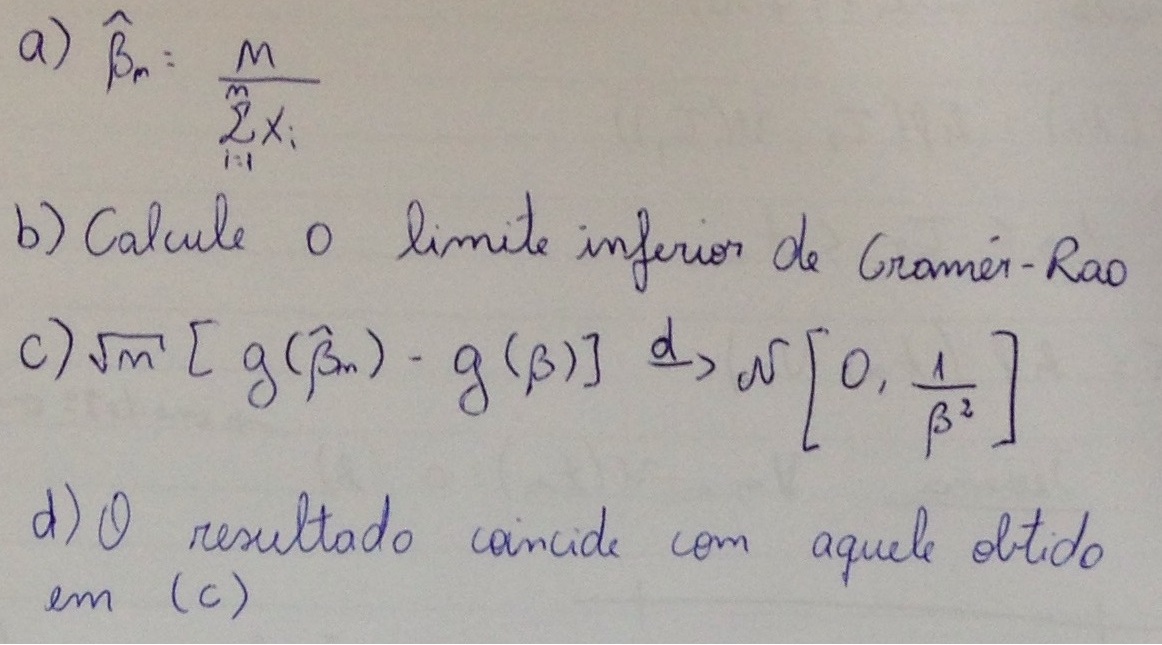 a) β̂ₙ = n / Σⁿᵢ₌₁ Xᵢ
b) Calcule o limite inferior de Cramér-Rao
c) √n [ g(β̂ₙ) - g(β)] d→ N[0, 1/β²]
d) O resultado coincide com aquele obtido
em (c)